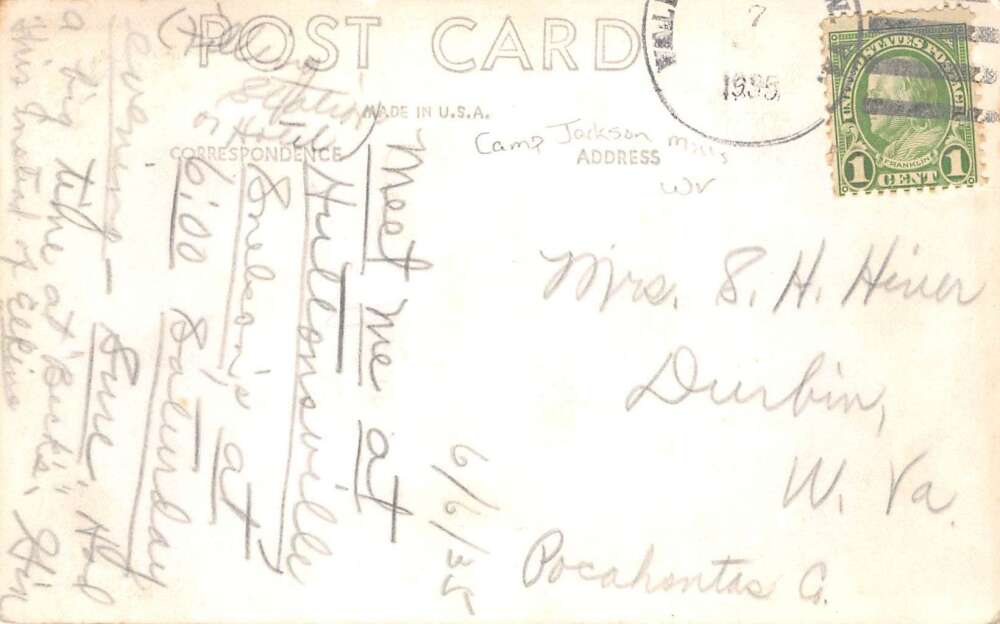 POST CARD
MADE IN U.S.A.
CORRESPONDENCE
ADDRESS
VALL
7
1935
UNITED STATES POSTAGE
FRANKLIN
1 CENT 1
Camp Jackson
WV
Mrs. S. H. Hiner
Durbin,
W. Va.
Pocahontas Co.
6/6/35
Meet me at
Huttonsville
Snelson's, at
6:00 Saturday
evening - Sure Had
a big time at "Beck's"
this instant of Elkins